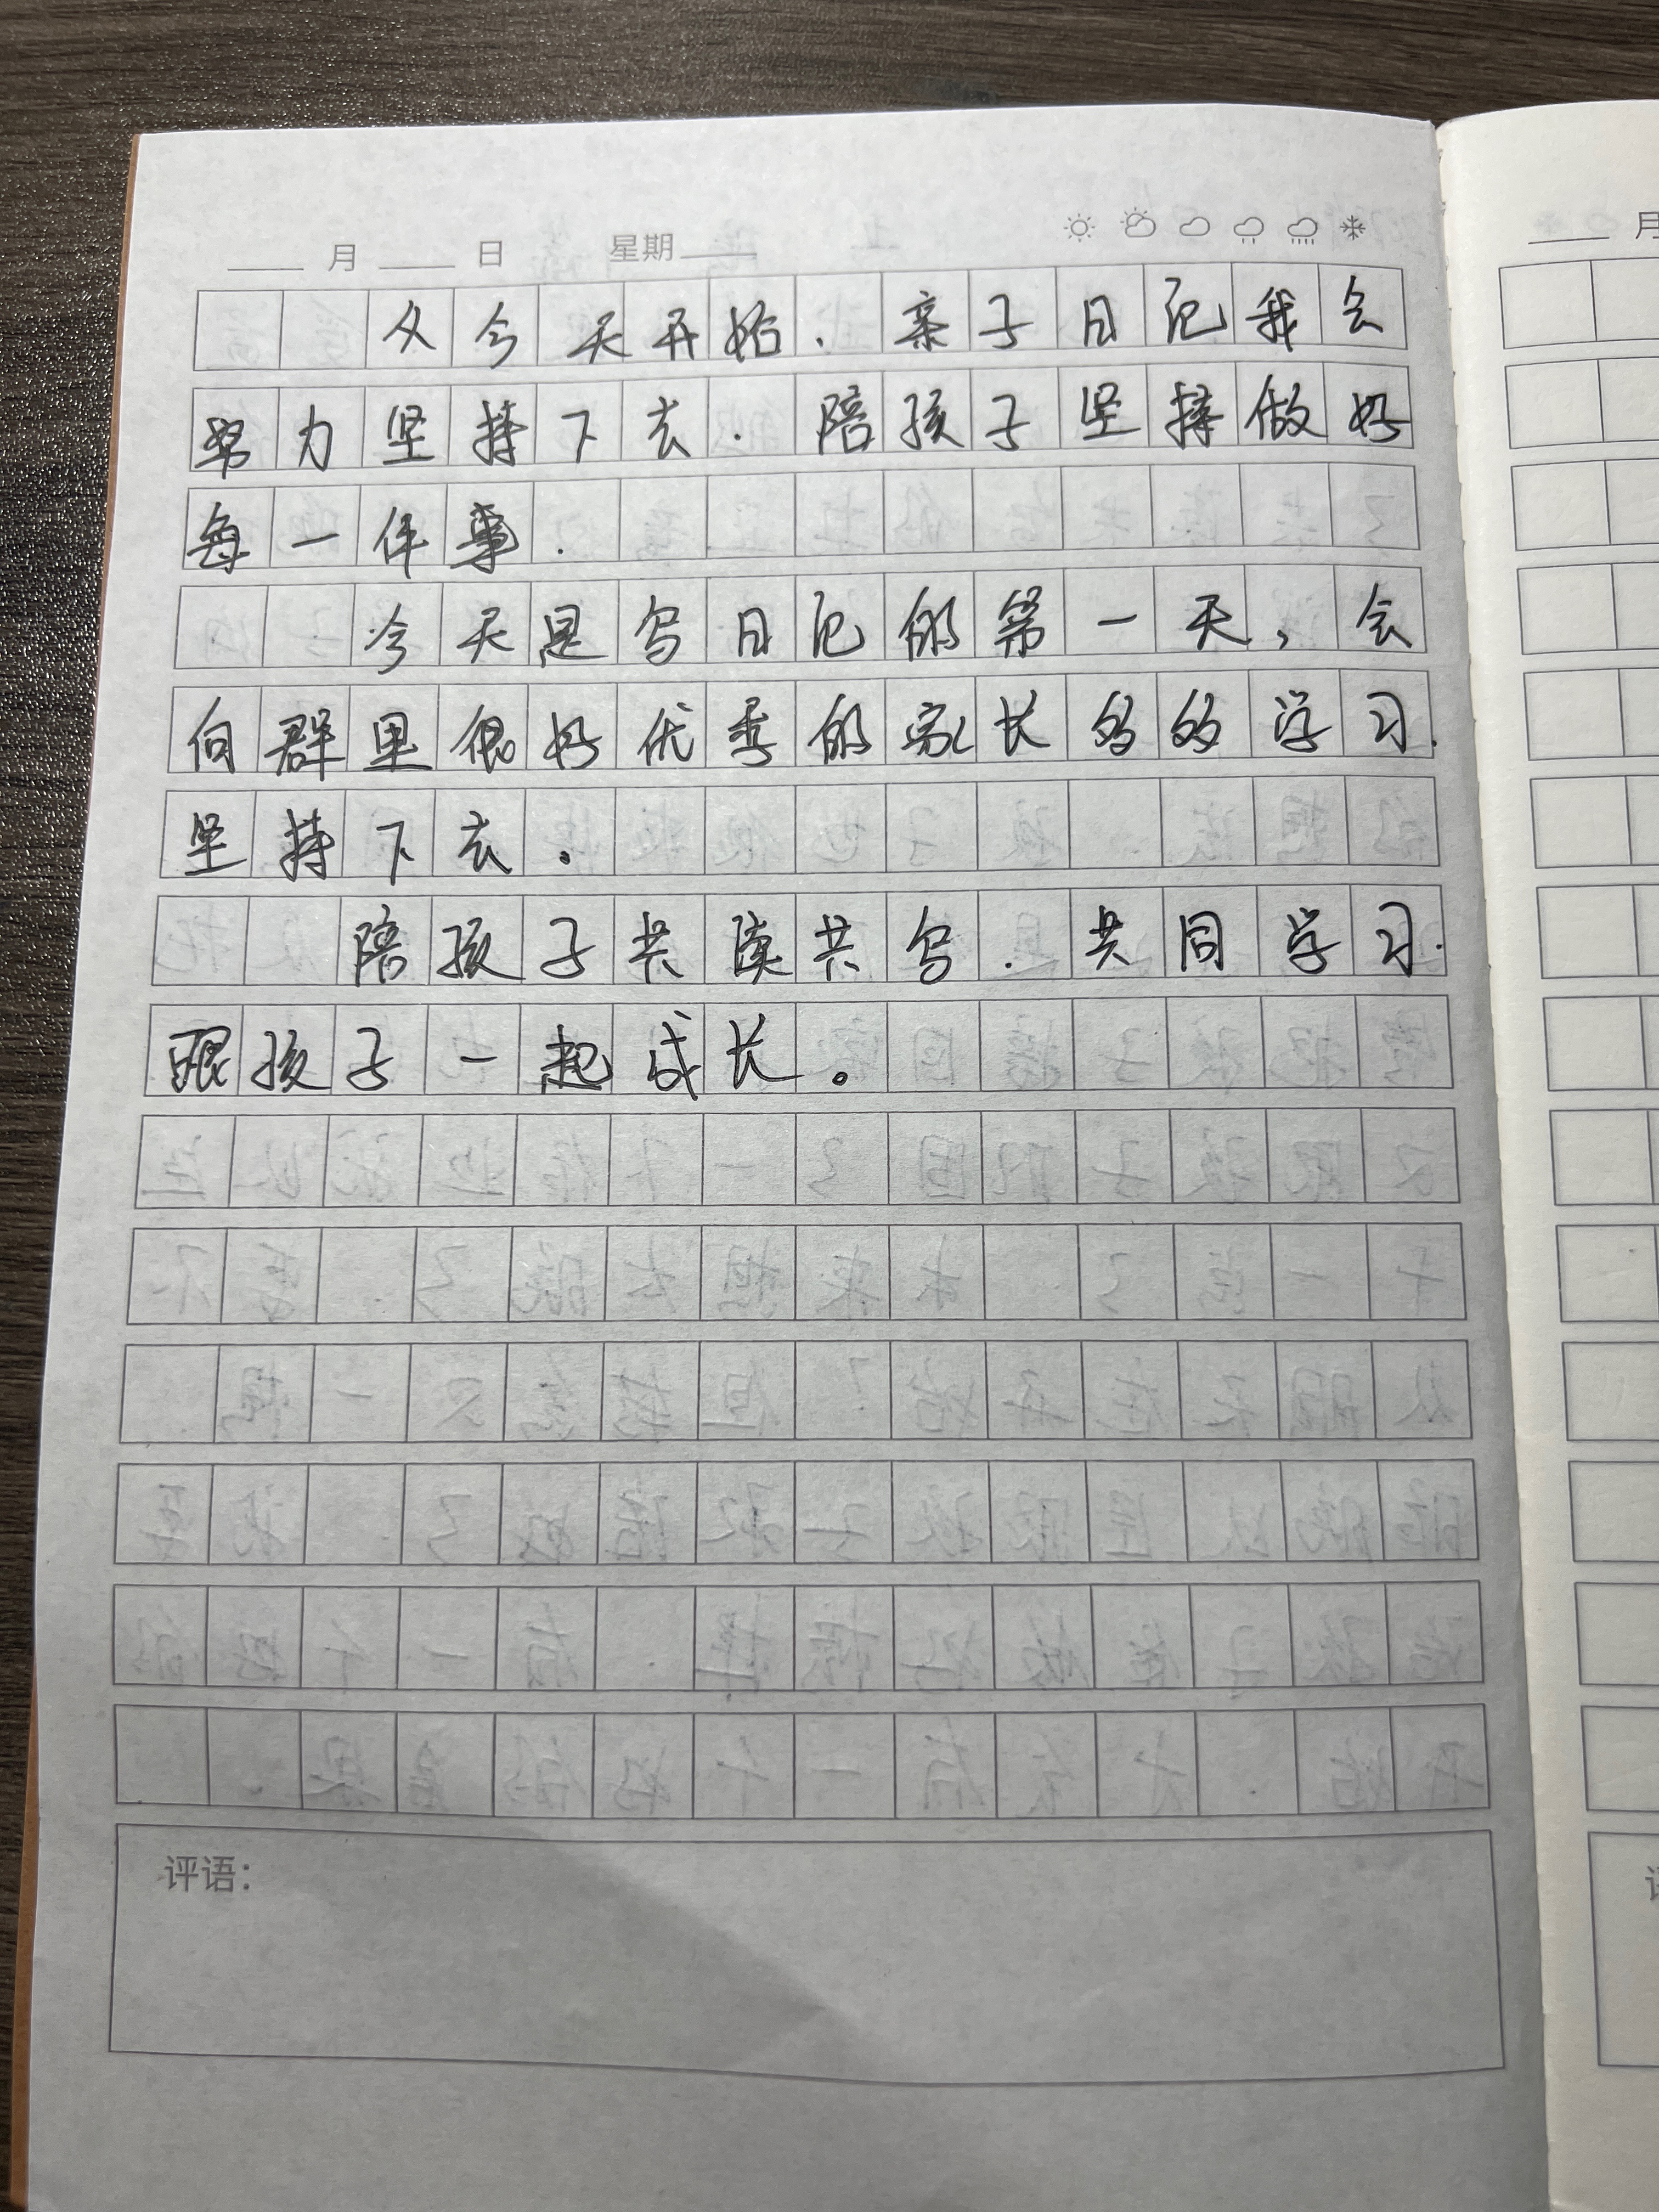 月 日 星期
从今天开始.亲子日记我会
努力坚持下去.陪孩子坚持做好
每一件事.
今天是写日记的第一天,会
向群里很好优秀的家长多多学习.
坚持下去。
陪孩子共读共写.共同学习.
跟孩子一起成长。
评语:
月